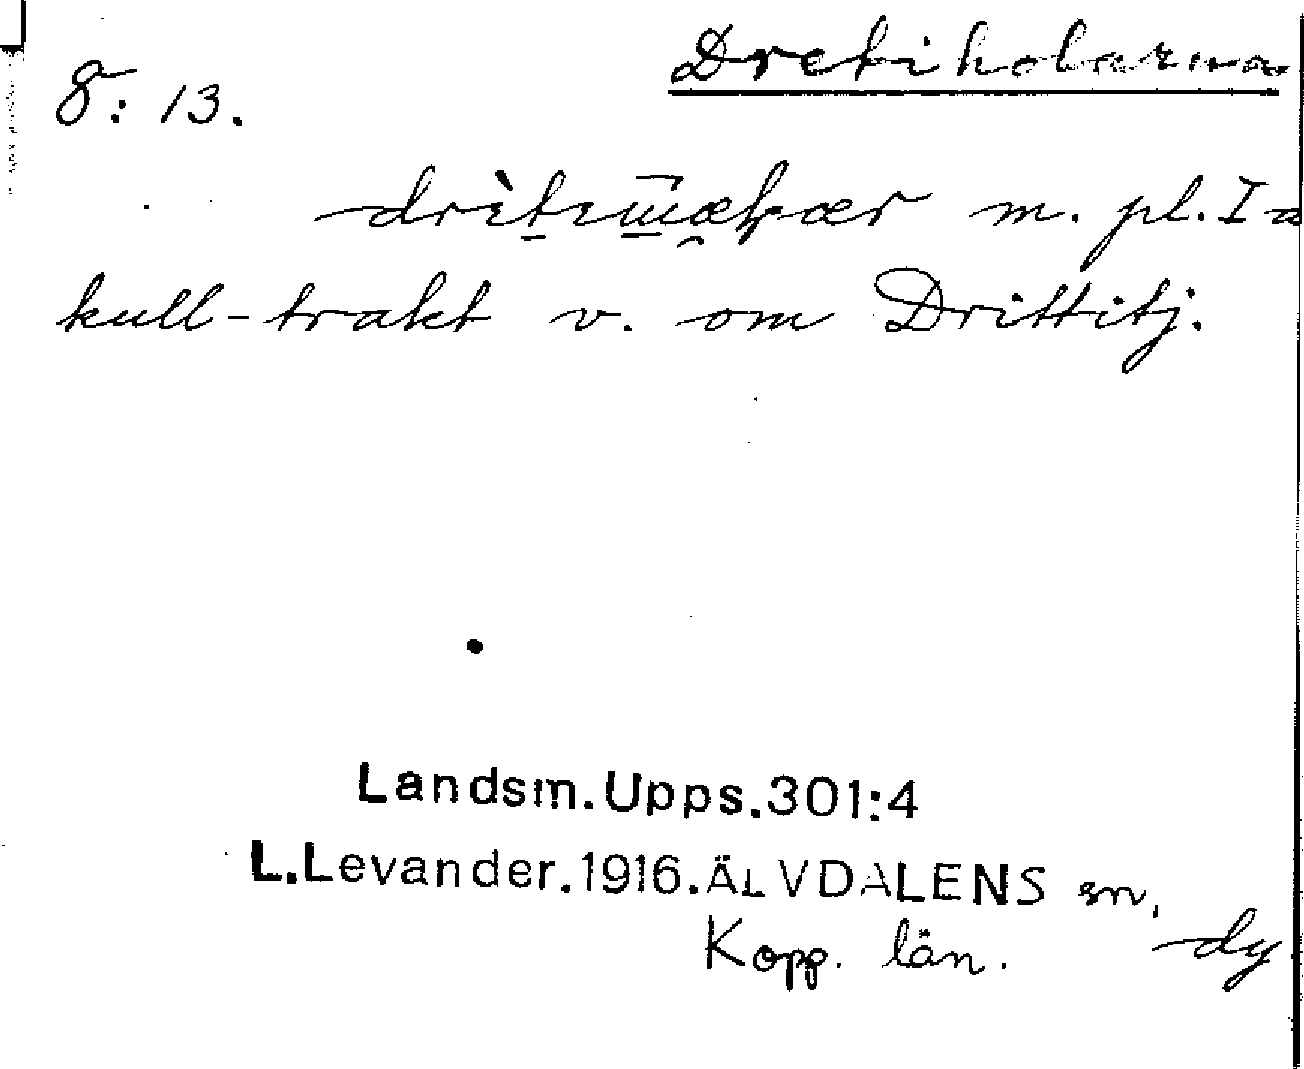 Dretiholarna
8:13.
m. pl. Ia
kull-trakt v. om Drittitj.
Landsm.Upps.301:4
L.Levander.1916.ÄLVDALENS sn,
Kopp. län. dy